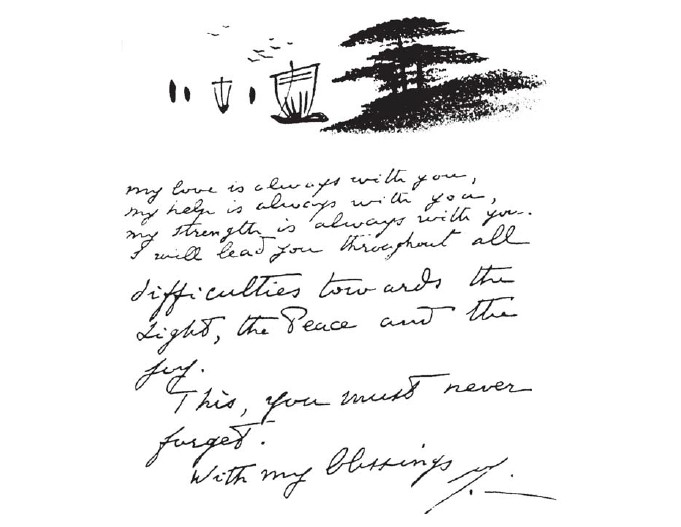 my love is always with you,
my help is always with you,
my strength is always with you.
I will lead you throughout all
difficulties towards the
Light, the Peace and the
Joy.
This, you must never
forget.
With my blessings